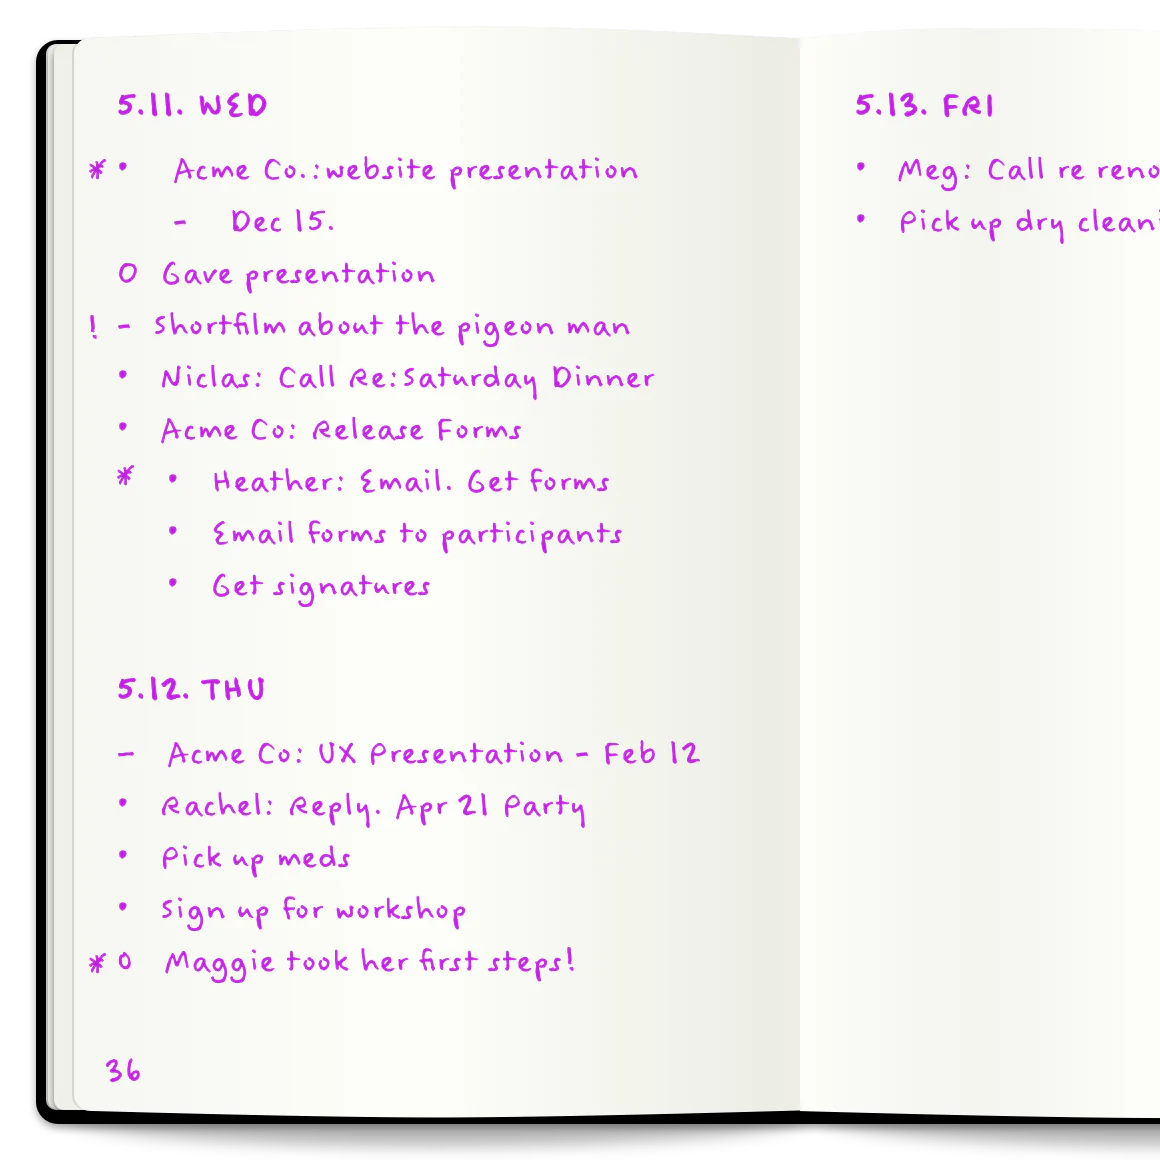 5.11. WED
* • Acme Co.: website presentation
- Dec 15.
O Gave presentation
! - Shortfilm about the pigeon man
• Niclas: Call Re: Saturday Dinner
• Acme Co: Release Forms
* • Heather: Email. Get forms
• Email forms to participants
• Get signatures
5.12. THU
– Acme Co: UX Presentation - Feb 12
• Rachel: Reply. Apr 21 Party
• Pick up meds
• Sign up for workshop
* O Maggie took her first steps!
36
5.13. FRI
• Meg: Call re
• Pick up dry